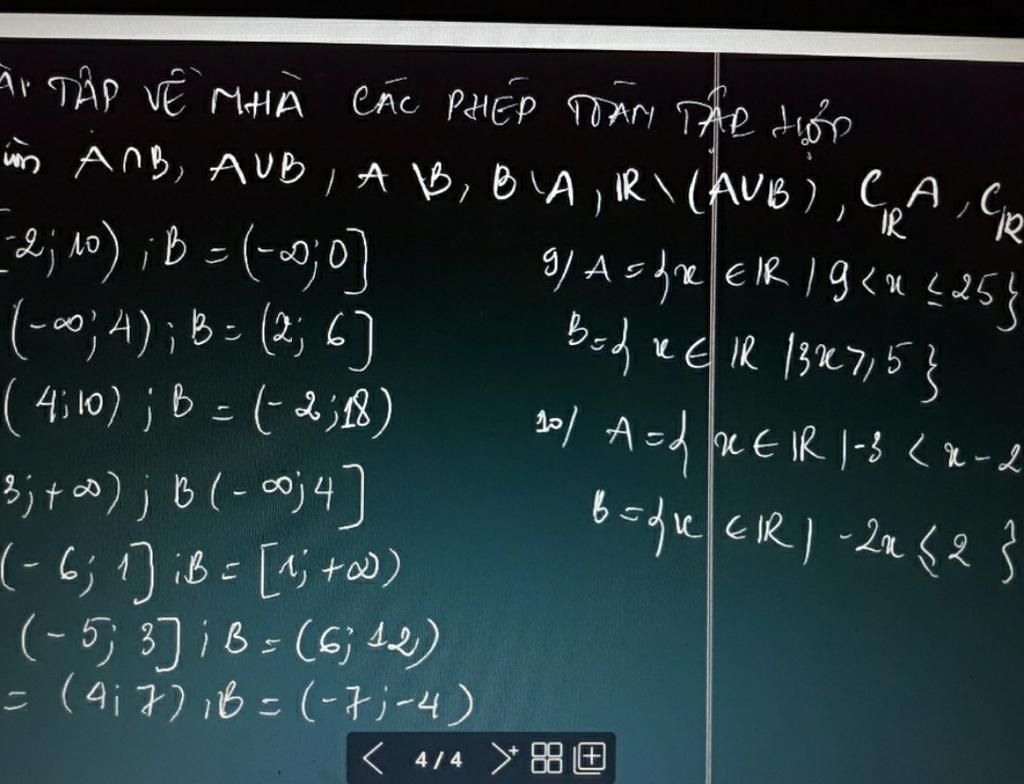 BÀI TẬP VỀ NHÀ CÁC PHÉP TOÁN TẬP HỢP
A∩B, A∪B, A\B, B\A, ℝ\(A∪B), C_ℝ A, C_ℝ
[-2; 10) ; B = (-∞; 0]
(-∞; 4) ; B = (2; 6]
(4; 10) ; B = (-2; 18)
3; +∞) ; B (-∞; 4]
(-6; 1] ; B = [1; +∞)
(-5; 3] ; B = (6; 12)
= (4; 7) ; B = (-7; -4)
9/ A = {x ∈ ℝ | 9 < x ≤ 25}
B = {x ∈ ℝ | 3x ≥ 5}
10/ A = {x ∈ ℝ | -3 < x - 2
B = {x ∈ ℝ | -2x ≤ 2}
4/4